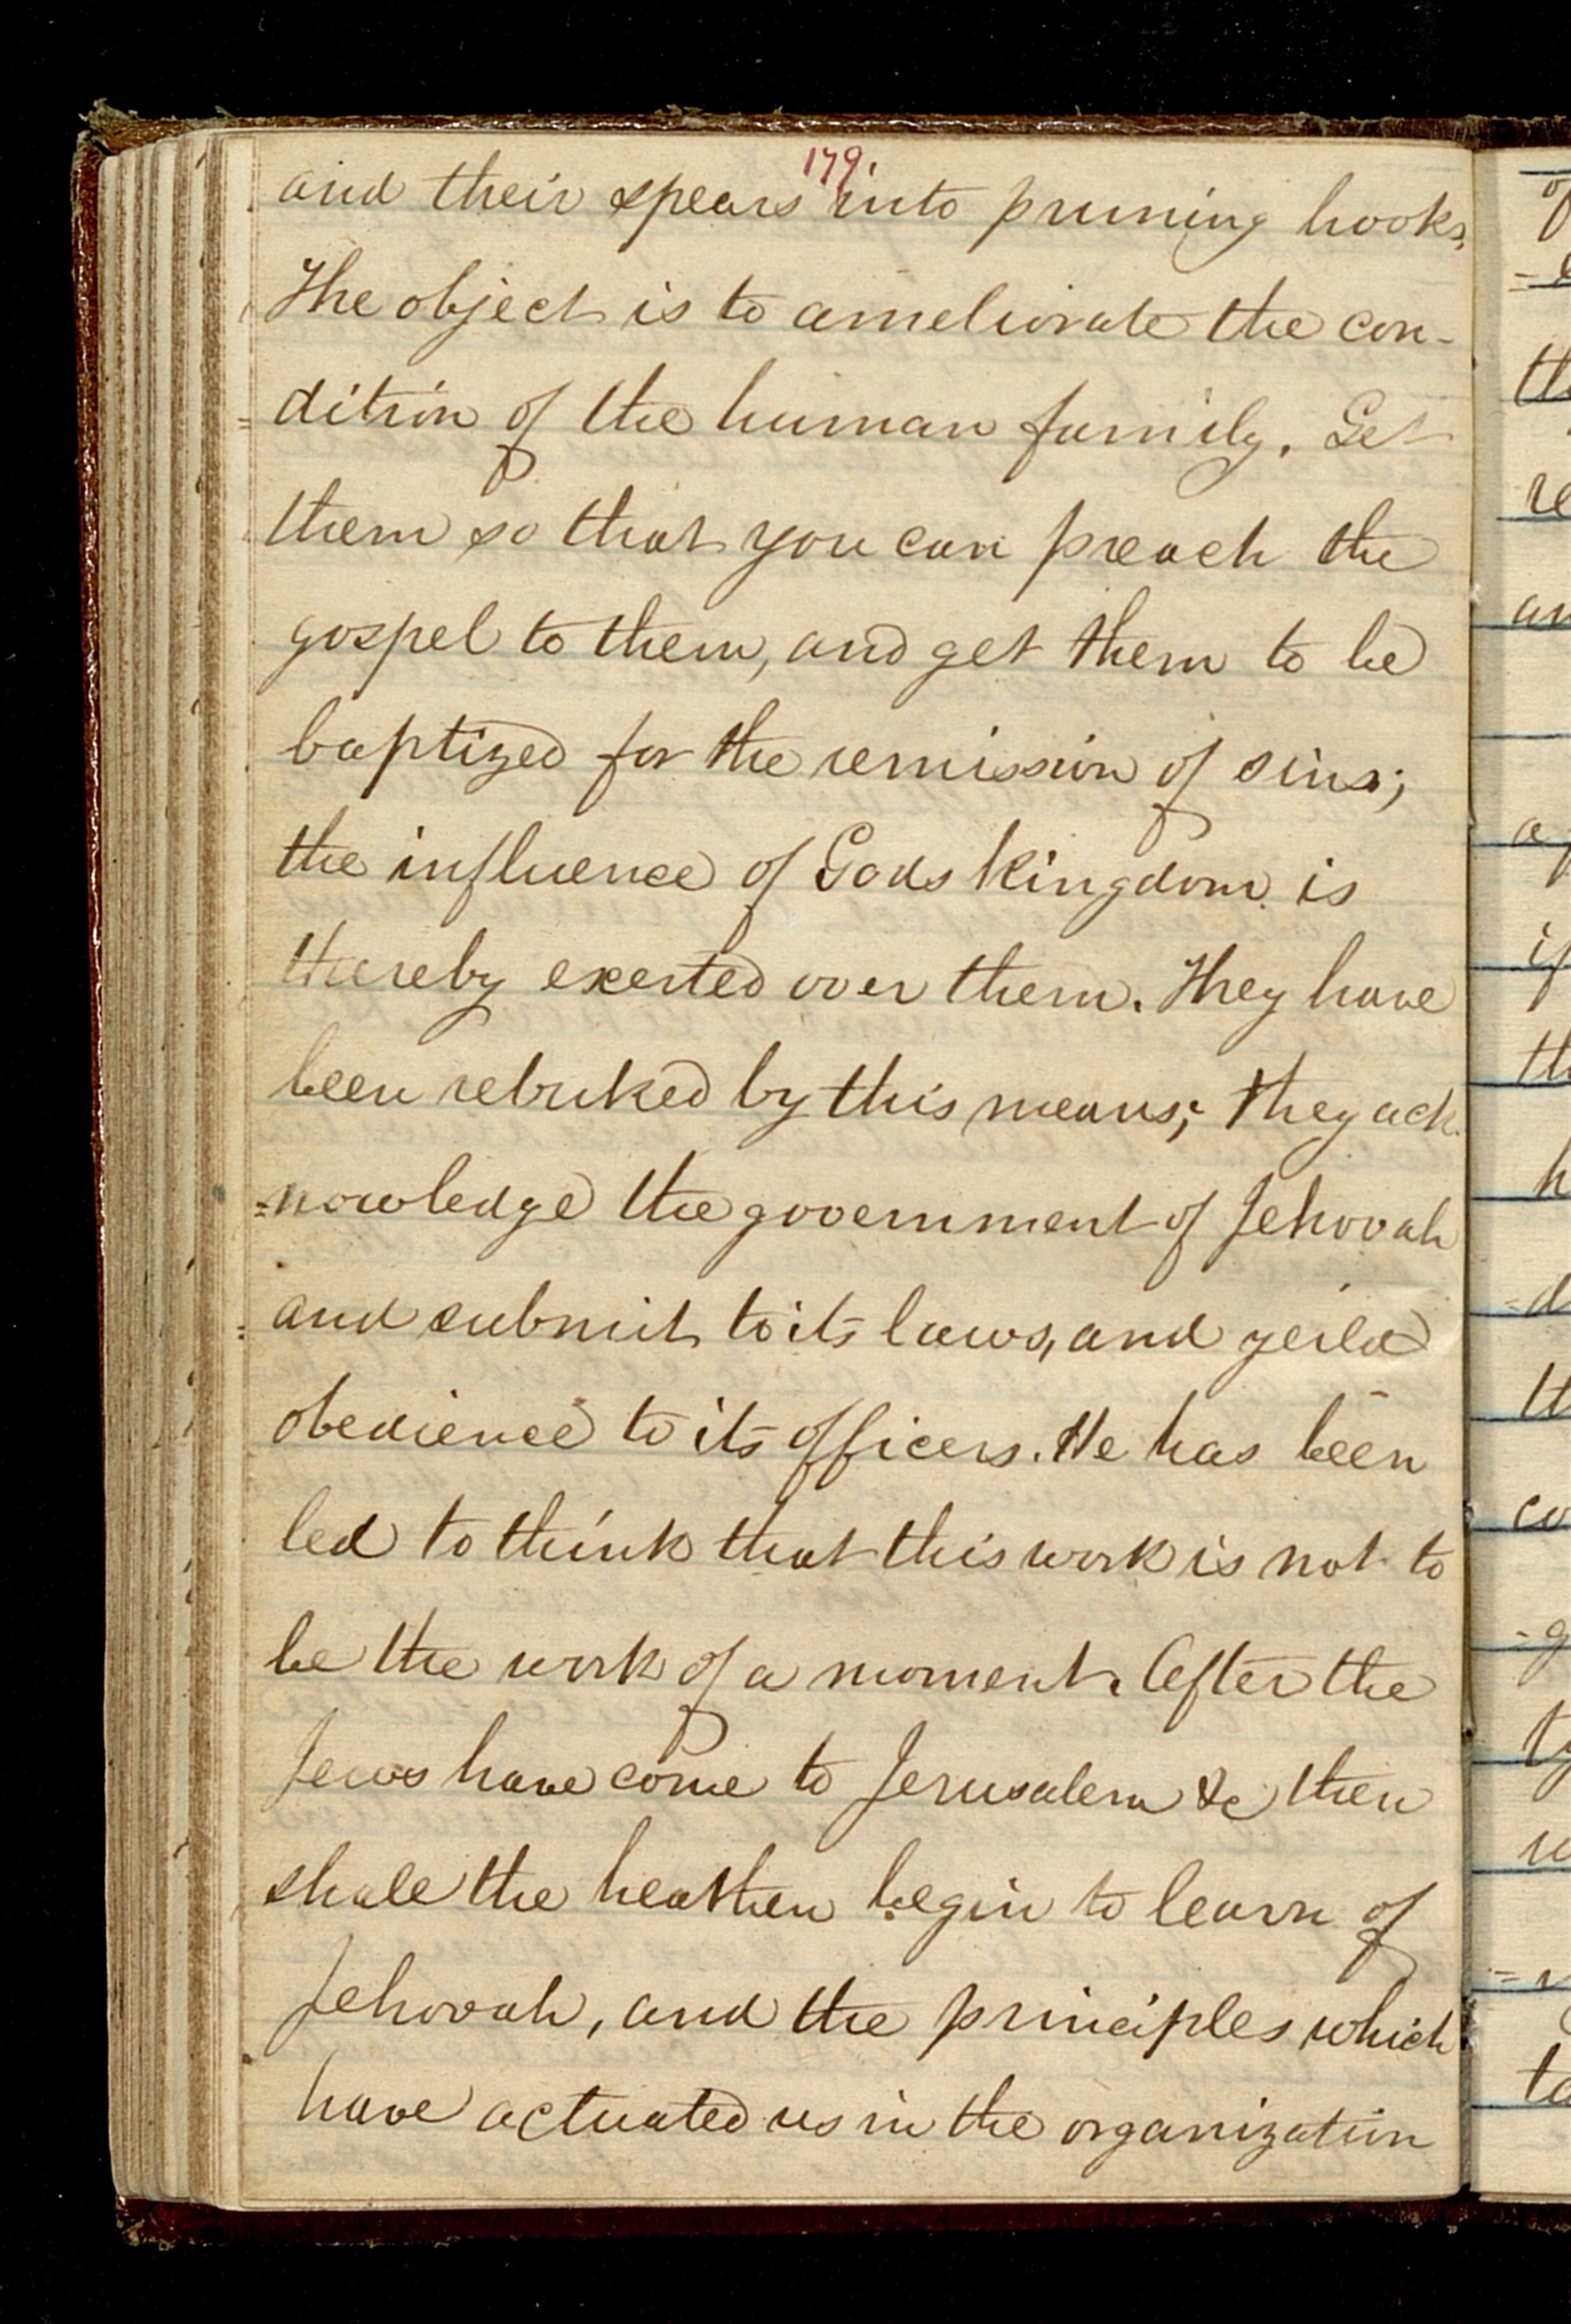 179.
and their spears into pruning hooks,
The object is to ameliorate the con-
=dition of the human family. Get
them so that you can preach the
gospel to them, and get them to be
baptized for the remission of sins;
the influence of Gods Kingdom is
thereby exerted over them. They have
been rebuked by this means; they ack-
=nowledge the government of Jehovah
and submit to its laws, and yeild
obedience to its officers. He has been
led to think that this work is not to
be the work of a moment. After the
Jews have come to Jerusalem &c then
shall the heathen begin to learn of
Jehovah, and the principles which
have actuated us in the organization